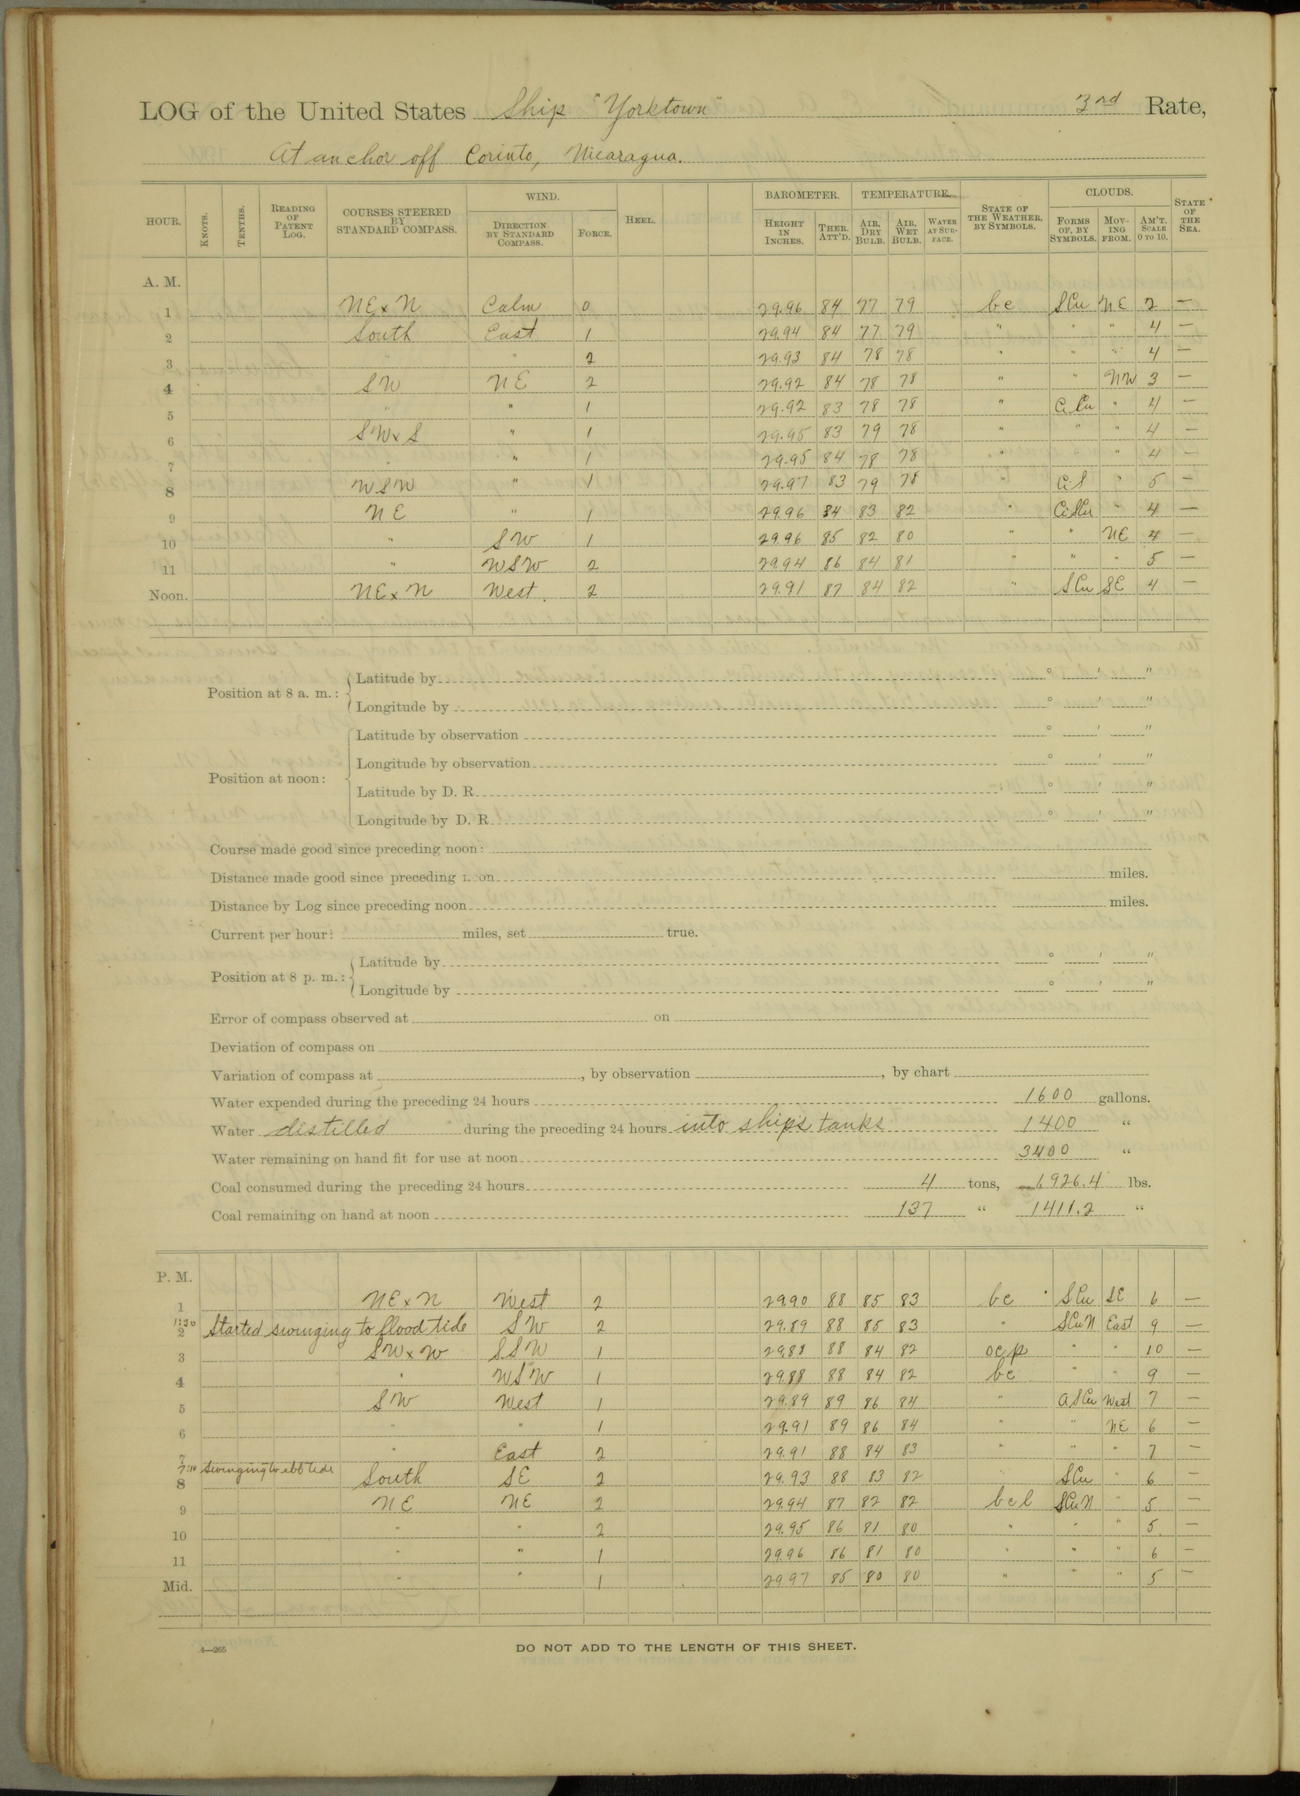 LOG of the United States Ship "Yorktown" 3rd Rate,
At anchor off Corinto, Nicaragua.
HOUR. KNOTS. TENTHS. READING OF PATENT LOG. COURSES STEERED BY STANDARD COMPASS. WIND. DIRECTION BY STANDARD COMPASS. FORCE. HEEL. BAROMETER. HEIGHT IN INCHES. THER. ATT'D. TEMPERATURE. AIR, DRY BULB. AIR, WET BULB. WATER AT SURFACE. STATE OF THE WEATHER, BY SYMBOLS. CLOUDS. FORMS OF, BY SYMBOLS. MOVING FROM. AM'T. SCALE 0 TO 10. STATE OF THE SEA.
A. M.
1 NExN Calm 0 29.96 84 77 79 bc SCu NE 2 —
2 South East 1 29.94 84 77 79 " " " 4 —
3 " " 2 29.93 84 78 78 " " " 4 —
4 SW NE 2 29.92 84 78 78 " " NW 3 —
5 " " 1 29.92 83 78 78 " CiCu " 4 —
6 SWxS " 1 29.95 83 79 78 " " " 4 —
7 " " 1 29.95 84 78 78 " " " 4 —
8 WSW " 1 29.97 83 79 78 " CiS " 5 —
9 NE " 1 29.96 84 83 82 " CiSCu " 4 —
10 " SW 1 29.96 85 82 80 " " NE 4 —
11 " WSW 2 29.94 86 84 81 " " " 5 —
Noon. NExN West. 2 29.91 87 84 82 " SCu SE 4 —
Position at 8 a. m.: Latitude by ° ' "
Longitude by ° ' "
Position at noon: Latitude by observation ° ' "
Longitude by observation ° ' "
Latitude by D. R. ° ' "
Longitude by D. R. ° ' "
Course made good since preceding noon:
Distance made good since preceding noon miles.
Distance by Log since preceding noon miles.
Current per hour: miles, set true.
Position at 8 p. m.: Latitude by ° ' "
Longitude by ° ' "
Error of compass observed at on
Deviation of compass on
Variation of compass at , by observation , by chart
Water expended during the preceding 24 hours 1600 gallons.
Water distilled during the preceding 24 hours into ship's tanks 1400 "
Water remaining on hand fit for use at noon 3400 "
Coal consumed during the preceding 24 hours 4 tons, 1926.4 lbs.
Coal remaining on hand at noon 137 " 1411.2 "
P. M.
1 NExN West 2 29.90 88 85 83 bc SCu SE 6 —
1:30
2 Started swinging to flood tide SW 2 29.89 88 85 83 " SCuN East 9 —
3 SWxW SSW 1 29.88 88 84 82 ocp " " 10 —
4 " WSW 1 29.88 88 84 82 bc " " 9 —
5 SW West 1 29.89 89 86 84 " ASCu West 7 —
6 " " 1 29.91 89 86 84 " " NE 6 —
7 " East 2 29.91 88 84 83 " " " 7 —
7:10 Swinging to ebb tide
8 South SE 2 29.93 88 83 82 " SCu " 6 —
9 NE NE 2 29.94 87 82 82 bcl SCuN " 5 —
10 " " 2 29.95 86 81 80 " " " 5 —
11 " " 1 29.96 86 81 80 " " " 6 —
Mid. " " 1 29.97 85 80 80 " " " 5 —
4—265
DO NOT ADD TO THE LENGTH OF THIS SHEET.